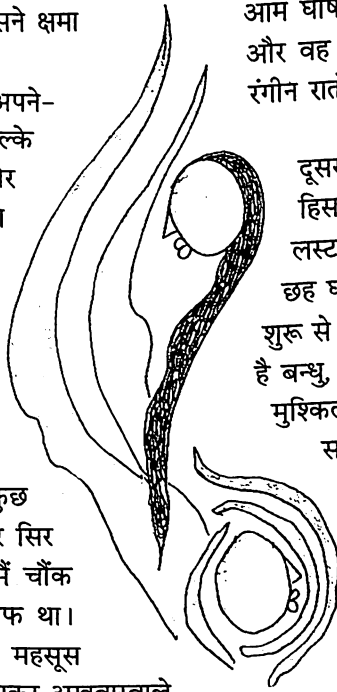 सने क्षमा
अपने-
ल्के
कुछ
सिर
मैं चौंक
फ था।
महसूस
आम घोष
और वह
रंगीन रातें
दूसर
हिस
लस्ट
छह घ
शुरू से
है बन्धु,
मुश्किल
स